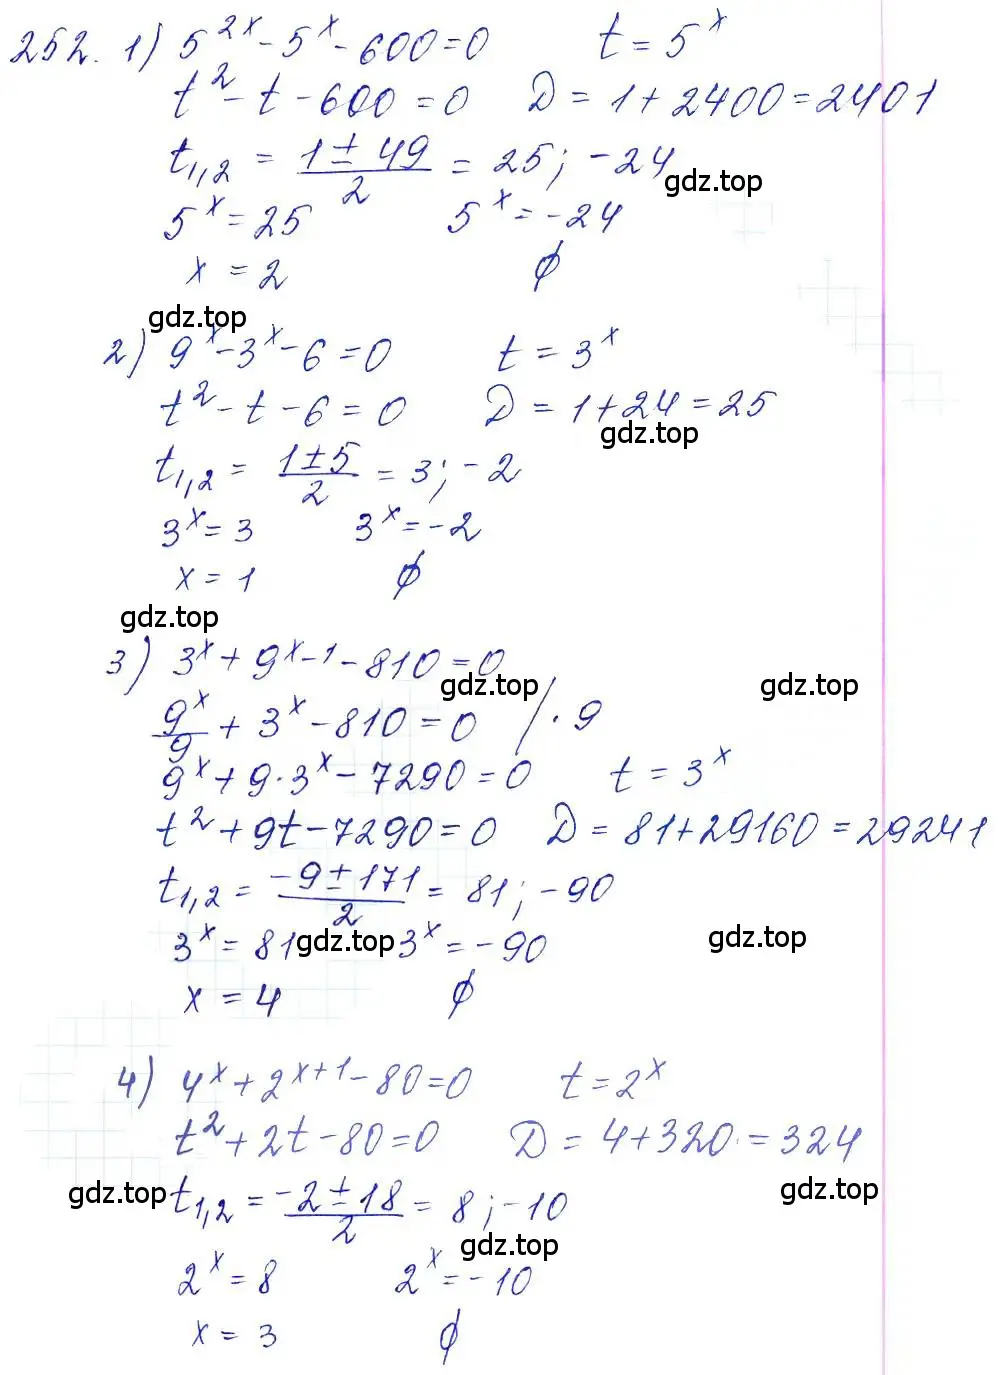 252. 1) 5^{2x} - 5^x - 600 = 0    t = 5^x
t^2 - t - 600 = 0    D = 1 + 2400 = 2401
t_{1,2} = \frac{1 ± 49}{2} = 25; -24
gdz.top
5^x = 25    5^x = -24
x = 2    ∅
gdz.top
2) 9^x - 3^x - 6 = 0    t = 3^x
t^2 - t - 6 = 0    D = 1 + 24 = 25
gdz.top
t_{1,2} = \frac{1 ± 5}{2} = 3; -2
3^x = 3    3^x = -2
x = 1    ∅
gdz.top
3) 3^x + 9^{x-1} - 810 = 0
gdz.top    gdz.top
\frac{9^x}{9} + 3^x - 810 = 0 / · 9
9^x + 9 · 3^x - 7290 = 0    t = 3^x
t^2 + 9t - 7290 = 0    D = 81 + 29160 = 29241
t_{1,2} = \frac{-9 ± 171}{2} = 81; -90
3^x = 81 gdz.top 3^x = -90    gdz.top
x = 4    ∅
4) 4^x + 2^{x+1} - 80 = 0    t = 2^x
t^2 + 2t - 80 = 0    D = 4 + 320 = 324
gdz.top t_{1,2} = \frac{-2 ± 18}{2} = 8; -10    gdz.top
gdz.top
2^x = 8    2^x = -10
x = 3    ∅